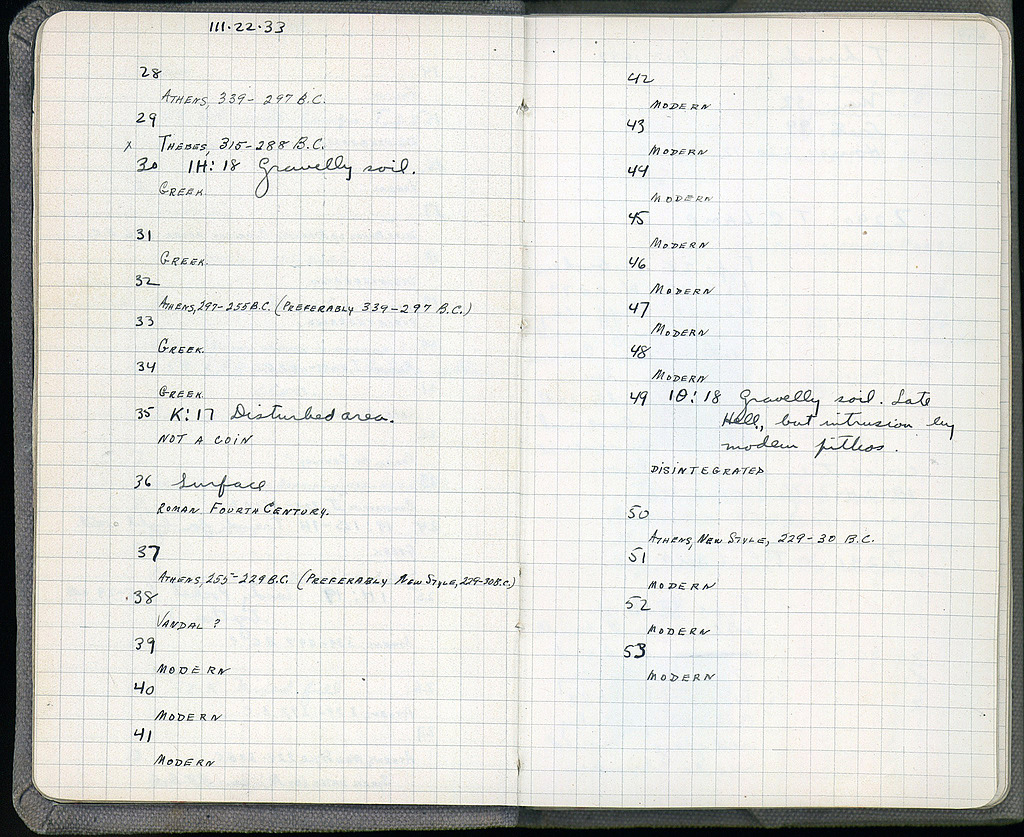 111·22·33
28
ATHENS, 339- 297 B.C.
29
x THEBES, 315-288 B.C.
30 1H: 18 Gravelly soil.
GREEK
31
GREEK.
32
ATHENS, 297-255 B.C. (PREFERABLY 339-297 B.C.)
33
GREEK.
34
GREEK
35 K: 17 Disturbed area.
NOT A COIN
36 Surface
ROMAN FOURTH CENTURY.
37
ATHENS, 255-229 B.C. (PREFERABLY NEW STYLE, 229-30 B.C.)
38
VANDAL ?
39
MODERN
40
MODERN
41
MODERN
42
MODERN
43
MODERN
44
MODERN
45
MODERN
46
MODERN
47
MODERN
48
MODERN
49 1Θ: 18 Gravelly soil. Late
Hell., but intrusion by
modern pithos.
DISINTEGRATED
50
ATHENS, NEW STYLE, 229-30 B.C.
51
MODERN
52
MODERN
53
MODERN